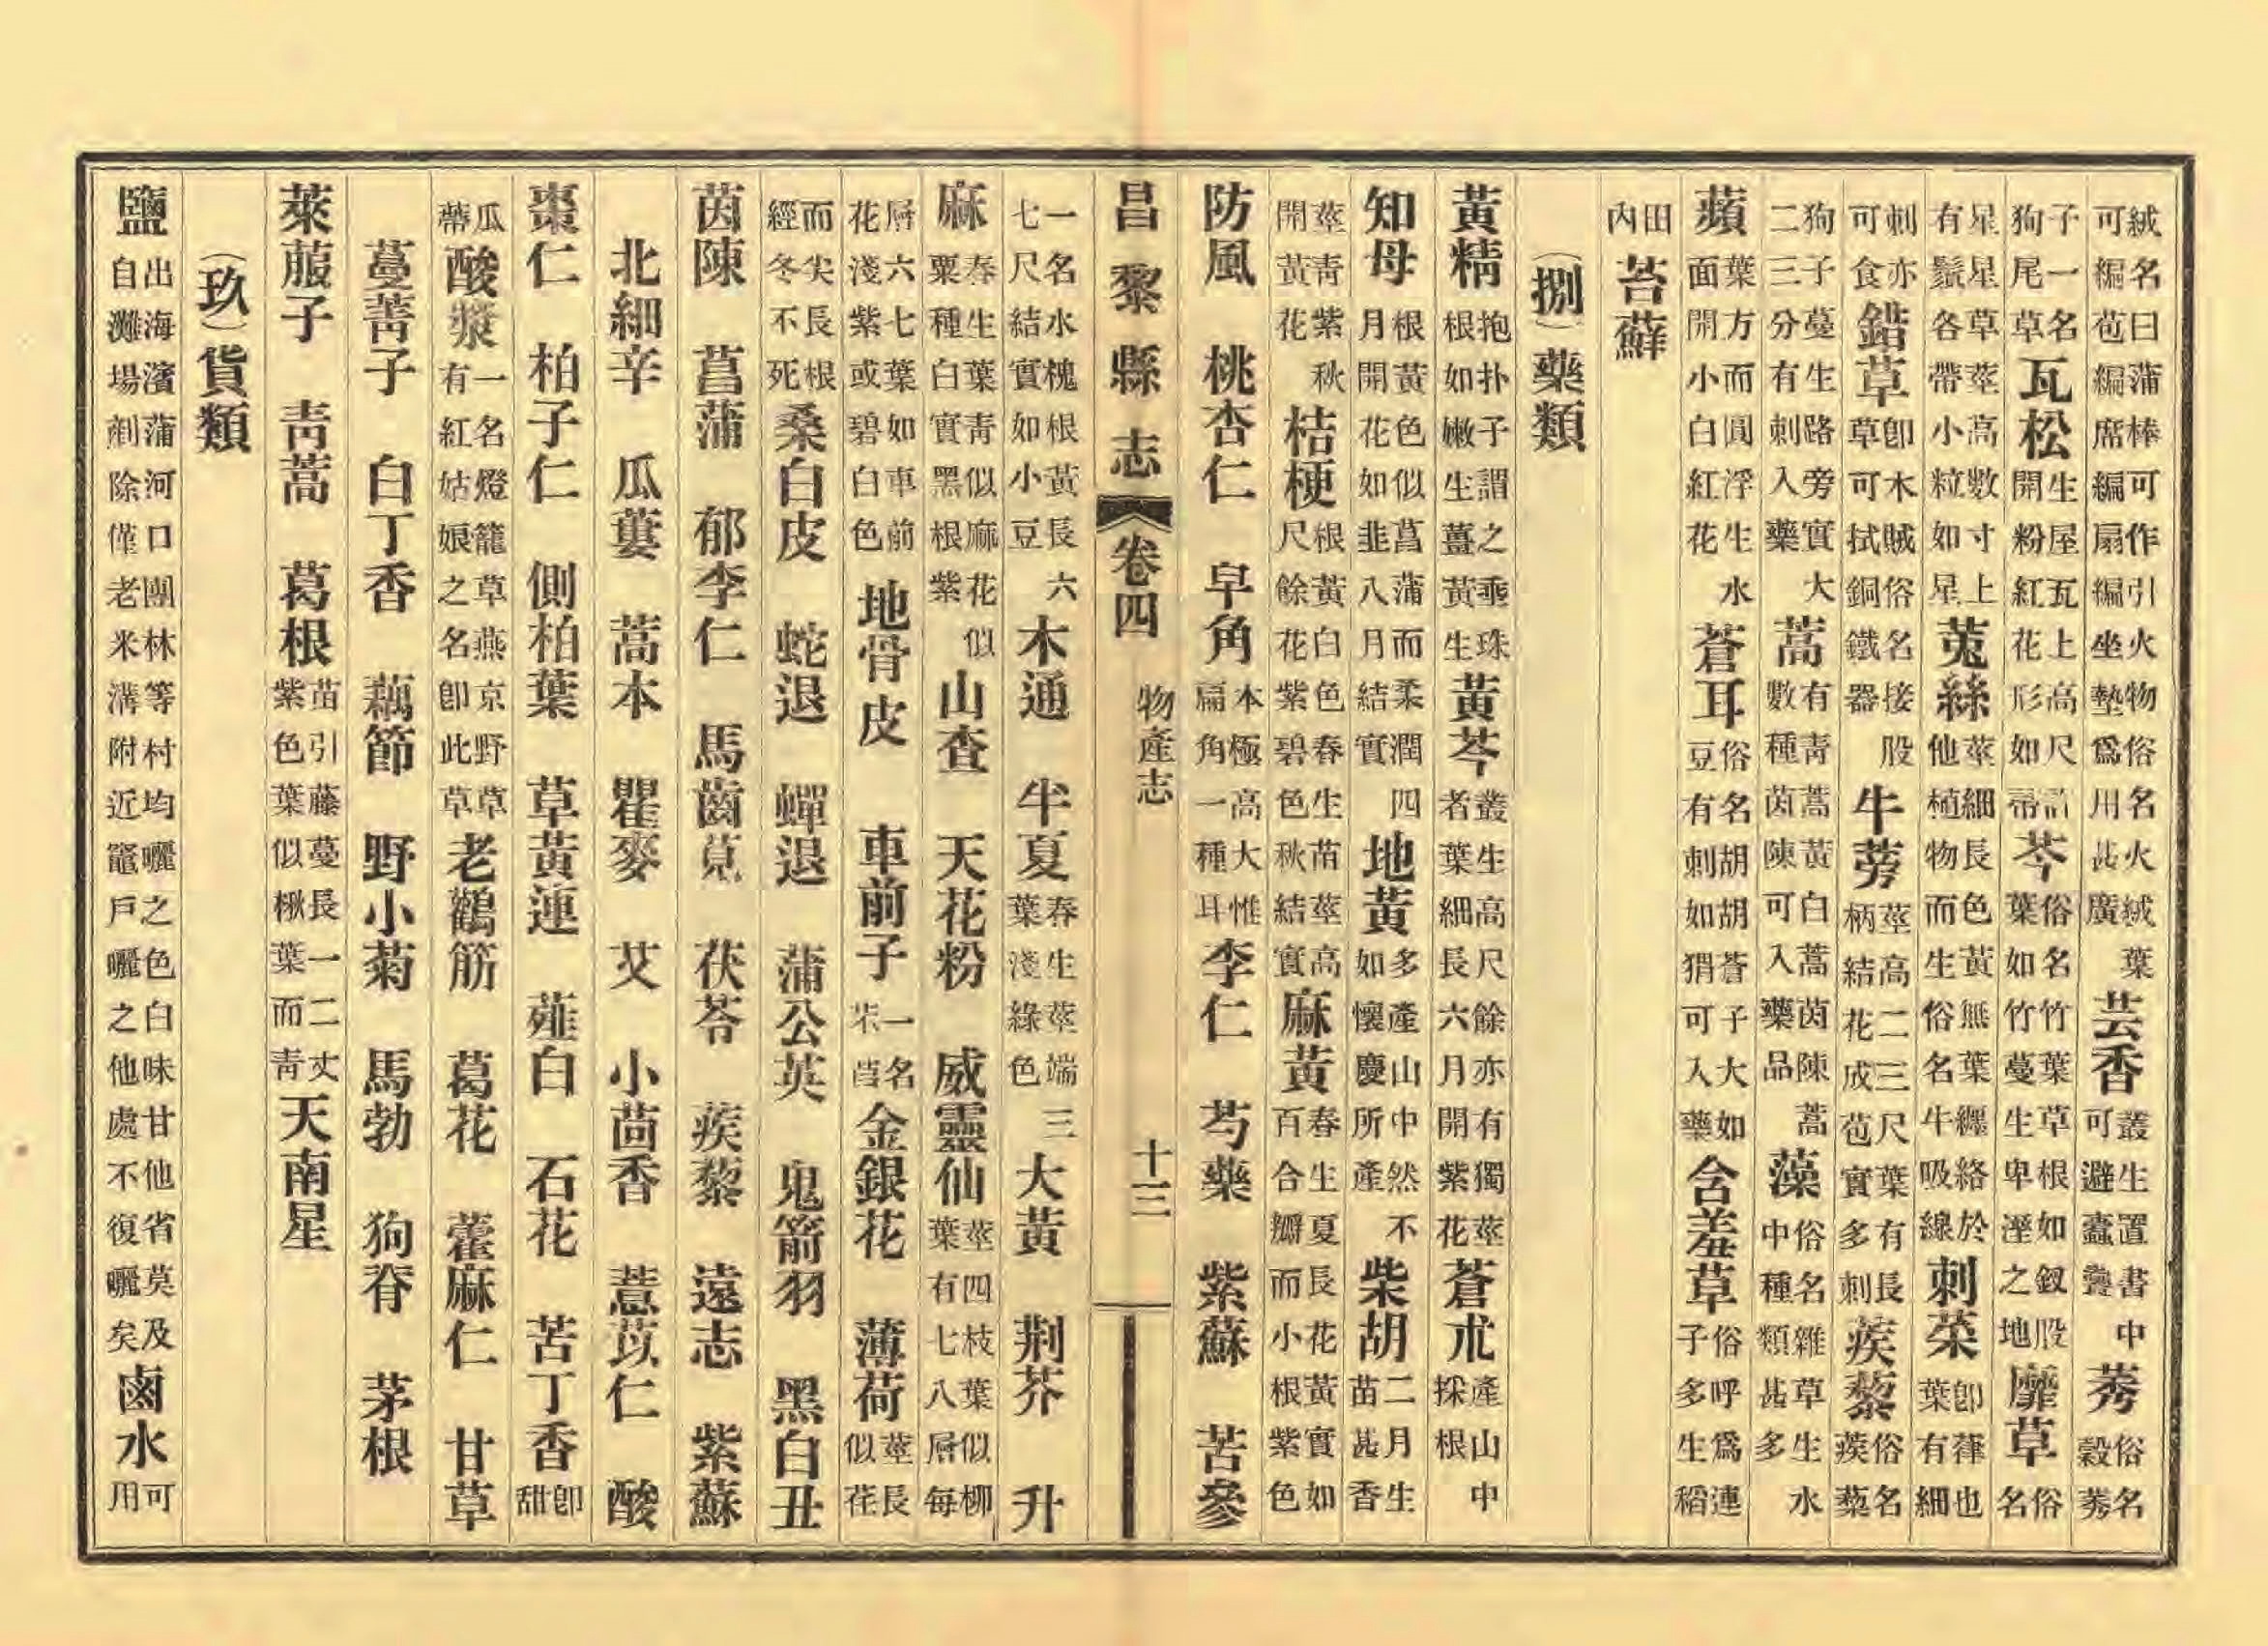 絨名曰蒲棒可作引火物俗名火絨葉可編苞編席編扇編坐墊爲用甚廣 芸香叢生置書中可避蠹 莠俗名穀莠
子一名狗尾草 瓦松生屋瓦上高尺許開粉紅花形如帚 芩俗名竹葉草根如釵股葉如竹蔓生卑溼之地 靡草俗名
星星草莖高數寸上有鬚各帶小粒如星 菟絲莖細長色黃無葉纏絡於他植物而生俗名牛吸線 刺菜卽葎也葉有細
刺亦可食 錯草卽木賊俗名接股草可拭銅鐵器 牛蒡莖高二三尺葉有長柄結花成苞實多刺 蒺藜俗名蒺藜
狗子蔓生路旁實大二三分有刺入藥 蒿有靑蒿黃白蒿茵陳蒿數種茵陳可入藥品 藻俗名雜草生水中種類甚多
蘋葉方而圓浮生水面開小白紅花 蒼耳俗名胡胡蒼子大如豆有刺如猬可入藥 含羞草俗呼爲連子多生稻
田內 苔蘚
(捌)藥類
黃精抱朴子謂之垂珠根如嫩生薑黃生 黃芩叢生高尺餘亦有獨莖者葉細長六月開紫花 蒼朮產山中採根
知母根黃色似菖蒲而柔潤四月開花如韭八月結實 地黃多產山中然不如懷慶所產 柴胡二月生苗甚香
莖靑紫秋開黃花 桔梗根黃白色春生苗莖高尺餘花紫碧色秋結實 麻黃春生夏長花黃實如百合瓣而小根紫色
防風 桃杏仁 皁角本極高大惟扁角一種耳 李仁 芍藥 紫蘇 苦參
昌黎縣志 卷四 物產志 十三
一名水槐根黃長六七尺結實如小豆 木通 半夏春生莖端三葉淺綠色 大黃 荆芥 升
麻春生葉靑似麻花似粟種白實黑根紫 山查 天花粉 威靈仙莖四枝葉似柳有七八層每
層六七葉如車前花淺紫或碧白色 地骨皮 車前子一名芣苢 金銀花 薄荷莖長似荏
而尖長根經冬不死 桑白皮 蛇退 蟬退 蒲公英 鬼箭羽 黑白丑
茵陳 菖蒲 郁李仁 馬齒莧 茯苓 蒺藜 遠志 紫蘇
北細辛 瓜蔞 蒿本 瞿麥 艾 小茴香 薏苡仁 酸
棗仁 柏子仁 側柏葉 草黃連 薤白 石花 苦丁香卽甜
瓜蒂 酸漿一名燈籠草燕京野草有紅姑娘之名卽此草 老鸛筋 葛花 藿麻仁 甘草
蔓菁子 白丁香 藕節 野小菊 馬勃 狗脊 茅根
萊菔子 靑蒿 葛根苗引藤蔓長一二丈紫色葉似楸葉而靑 天南星
(玖)貨類
鹽出海濱蒲河口團林等村均曬之色白味甘他省莫及自灘場剷除僅老米溝附近竈戶曬之他處不復曬矣 鹵水可用